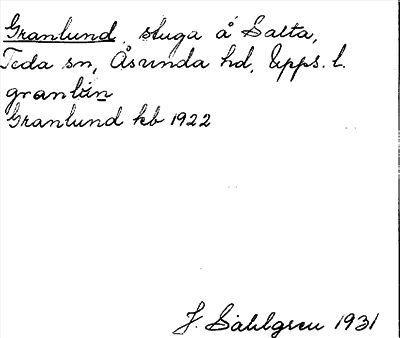 Granlund, stuga å Salta,
Teda sn, Åsunda hd, Upps. l.
granlün
Granlund kb 1922
J. Sahlgren 1931